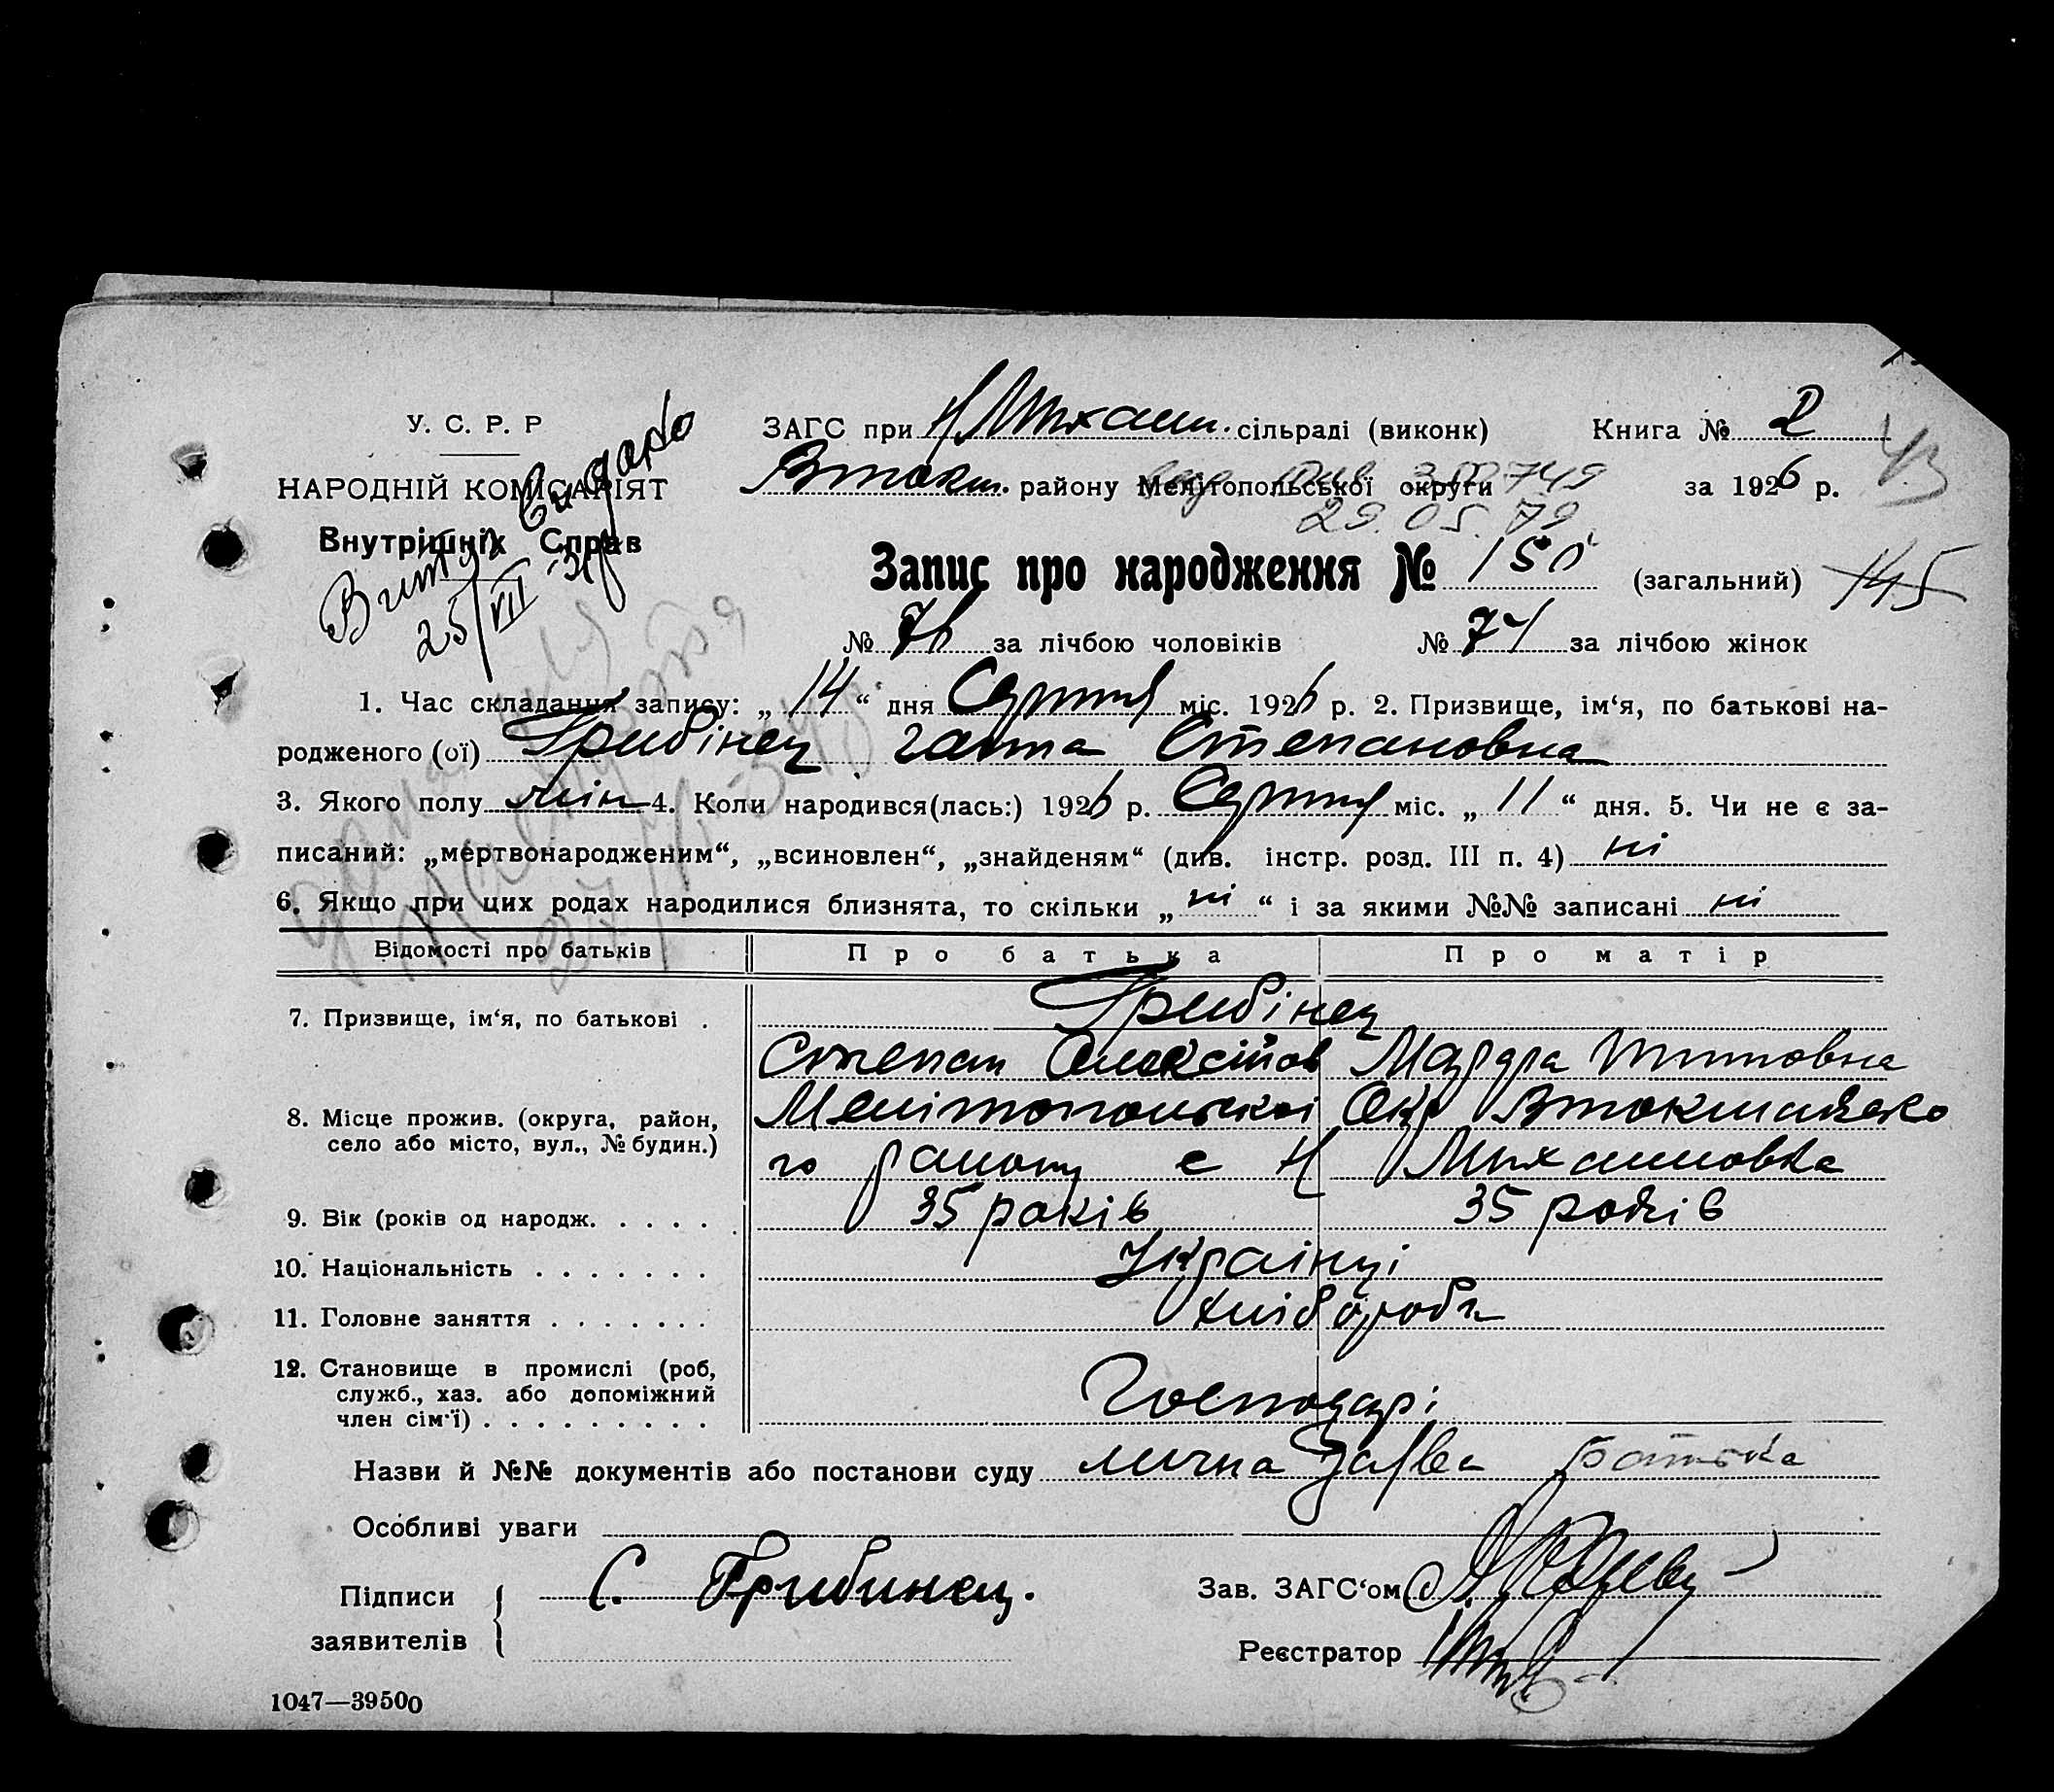 У. С. Р. Р
НАРОДНІЙ КОМІСАРІЯТ
Внутрішніх Справ
Витяг видано
25/VII-34
ЗАГС при Н Михайл. сільраді (виконк)
Книга № 2
43
Втокш. району Мелітопольської округи
749
за 1926 р.
29.05.79
Запис про народження № 150 (загальний) 145
№ 76 за лічбою чоловіків № 74 за лічбою жінок
1. Час складання запису: „ 14 “ дня Серпня міс. 1926 р. 2. Призвище, ім‘я, по батькові на-
родженого (ої) Грибінец Ганна Степановна
3. Якого полу жін 4. Коли народився(лась:) 1926 р. Серпня міс. „ 11 “ дня. 5. Чи не є за-
писаний: „мертвонародженим“, „всиновлен“, „знайденям“ (див. інстр. розд. III п. 4) ні
6. Якщо при цих родах народилися близнята, то скільки „ ні “ і за якими №№ записані ні
Відомості про батьків Про батька Про матір
7. Призвище, ім‘я, по батькові . Грибінец
Степан Олексійов Мардра Титовна
8. Місце прожив. (округа, район, село або місто, вул., № будин.) Мелітопольскоі Окр Втокшатско
го району с Н Михайловка
9. Вік (років од народж. . . . . 35 років 35 років
10. Національність . . . . . . . Украінці
11. Головне заняття . . . . . . . хлібороби
12. Становище в промислі (роб,
служб., хаз. або допоміжний
член сім‘ї) . . . . . . . . . Господарі
Назви й №№ документів або постанови суду лична заява батька
Особливі уваги
Підписи
заявителів
С. Грибинец.
Зав. ЗАГС‘ом
Реєстратор
1047—39500